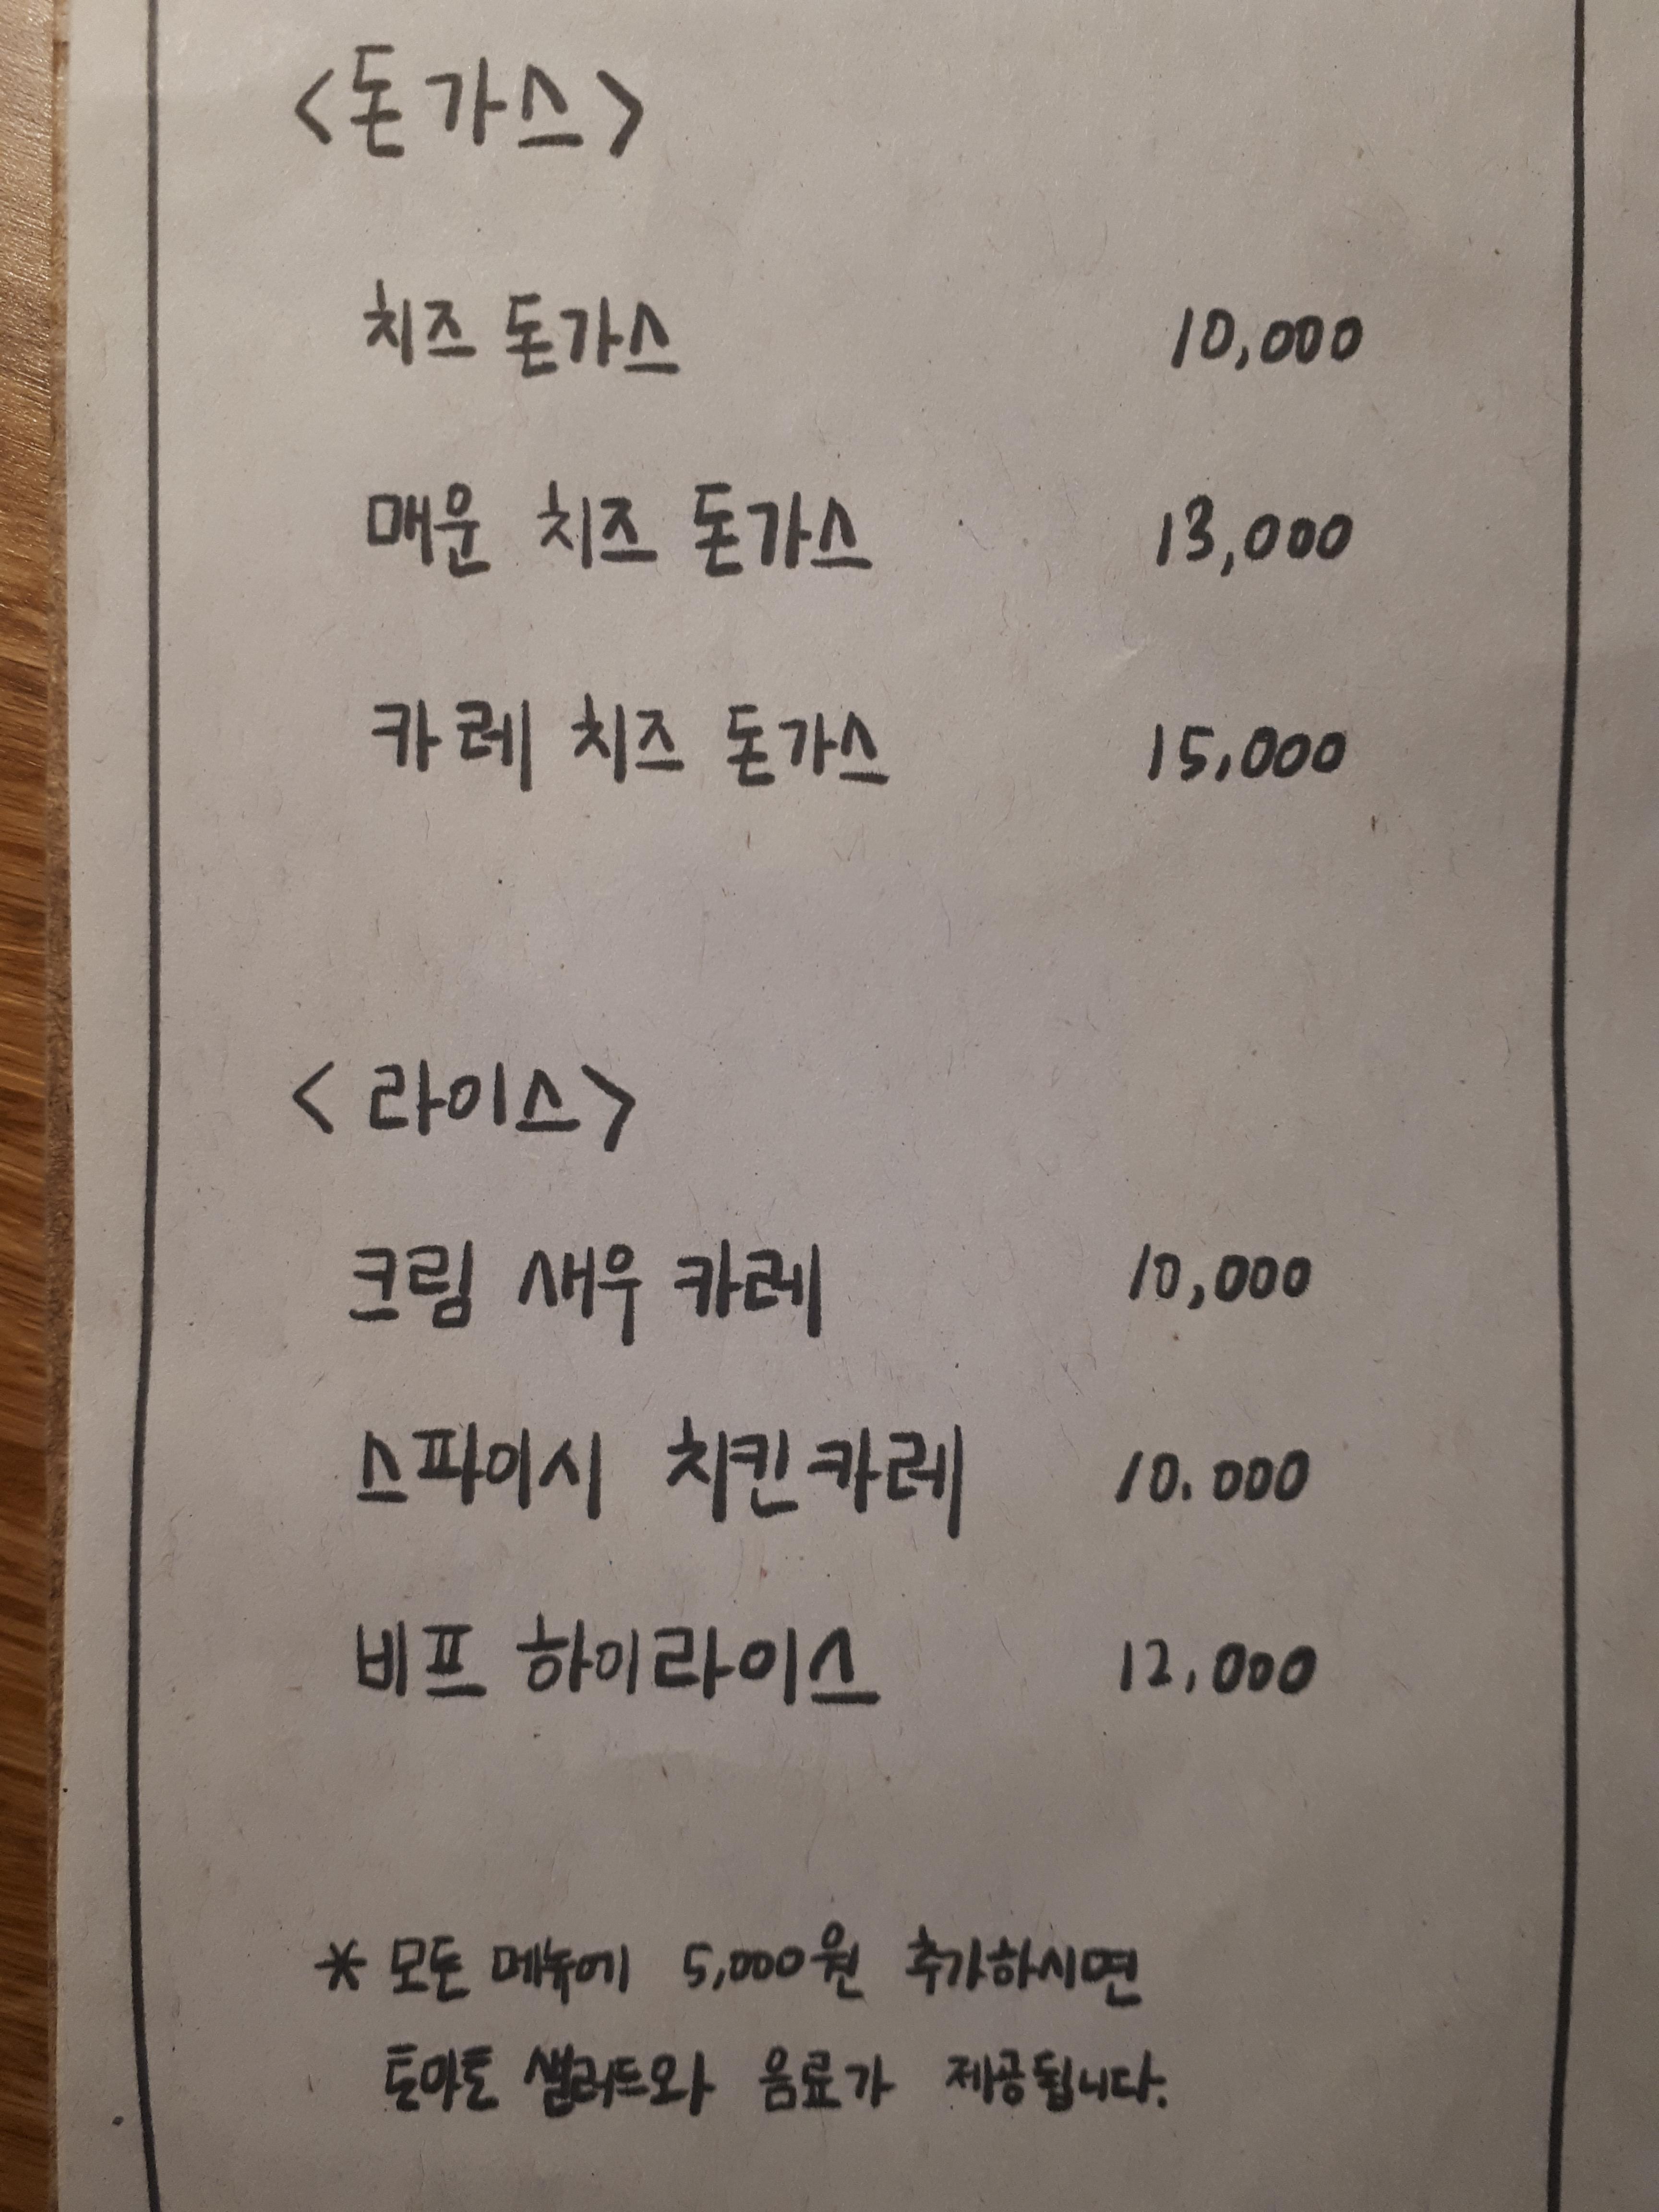 <돈가스>
치즈 돈가스 10,000
매운 치즈 돈가스 13,000
카레 치즈 돈가스 15,000
<라이스>
크림 새우 카레 10,000
스파이시 치킨카레 10.000
비프 하이라이스 12,000
* 모든 메뉴에 5,000원 추가하시면
토마토 샐러드와 음료가 제공됩니다.